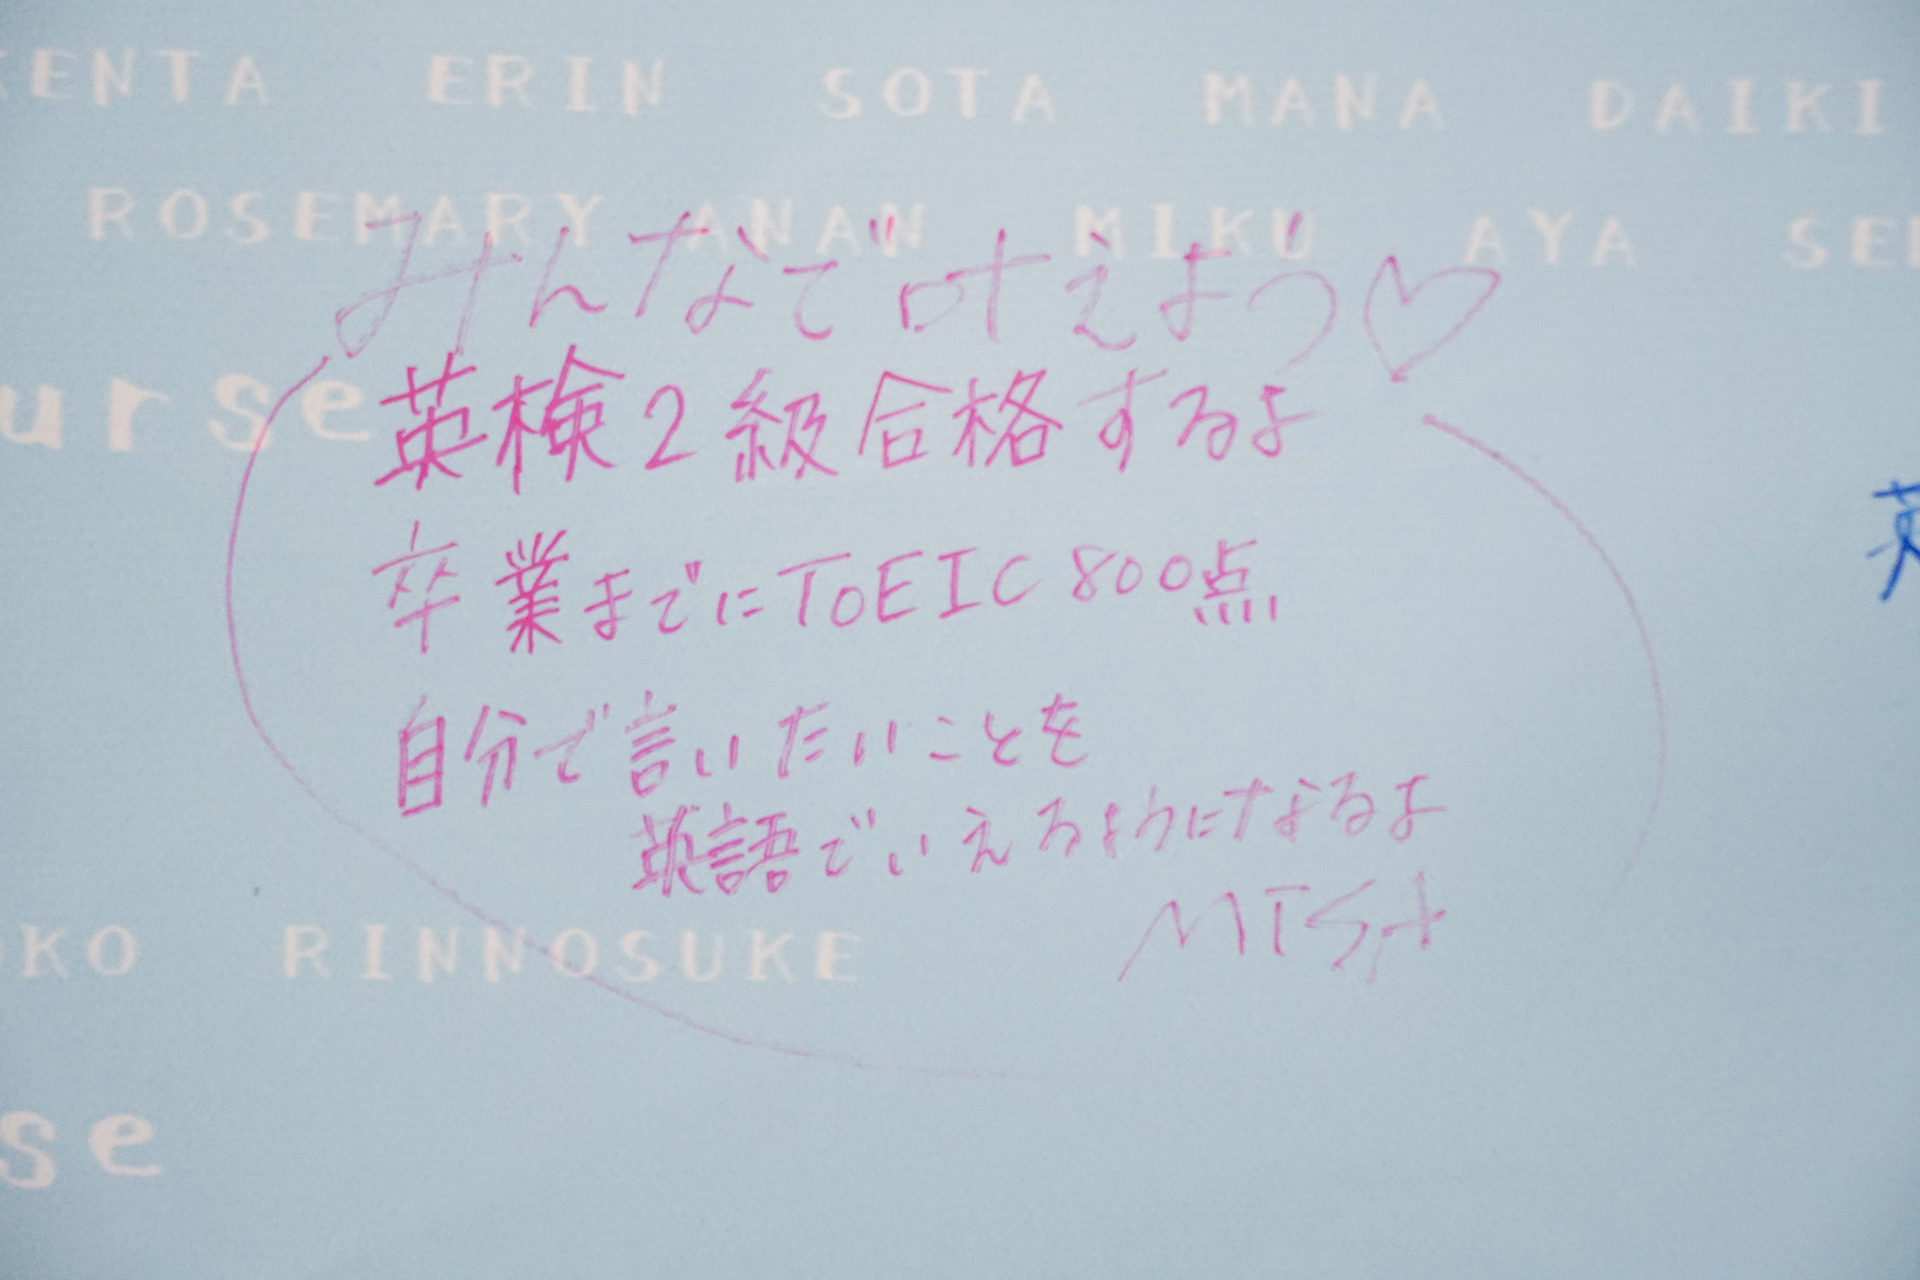 KENTA ERIN SOTA MANA DAIKI
ROSEMARY ANAN MIKU AYA
みんなで叶えよう♡
urse
英検2級合格するよ
卒業までにTOEIC 800点
自分で言いたいことを
英語でいえるようになるよ
OKO RINNOSUKE
se
英